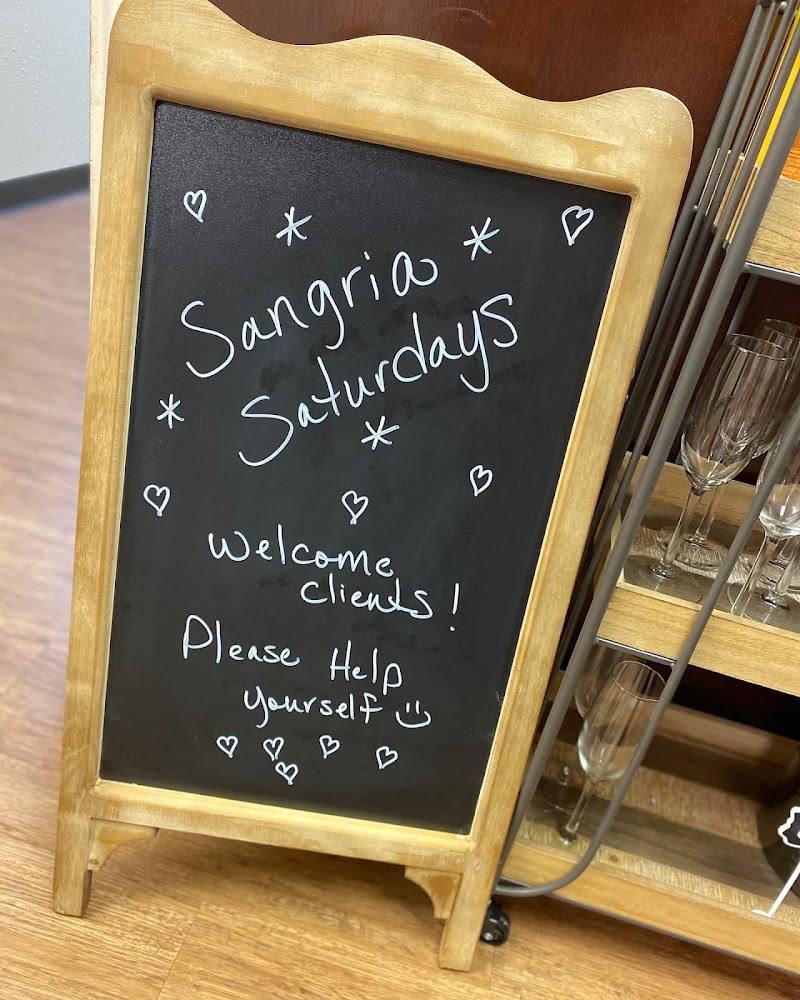 Sangria
Saturdays
Welcome
clients!
Please Help
yourself